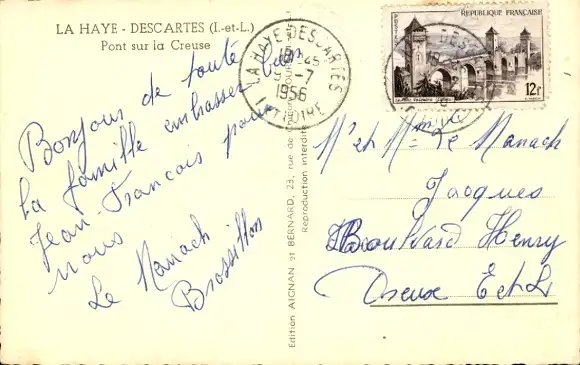 LA HAYE - DESCARTES (I.-et-L.)
Pont sur la Creuse
Bonjour de toute
la famille embrasser bien
Jean-Francois pour
nous
Le Manach
Brossillon
LA HAYE-DESCARTES
15-45
-7
1956
RÉPUBLIQUE FRANÇAISE
12F
Edition AIGNAN et BERNARD, 23, rue de
Reproduction interdite
M' et Mme Le Manach
Jacques
Boulevard Henry
Dreux E et L